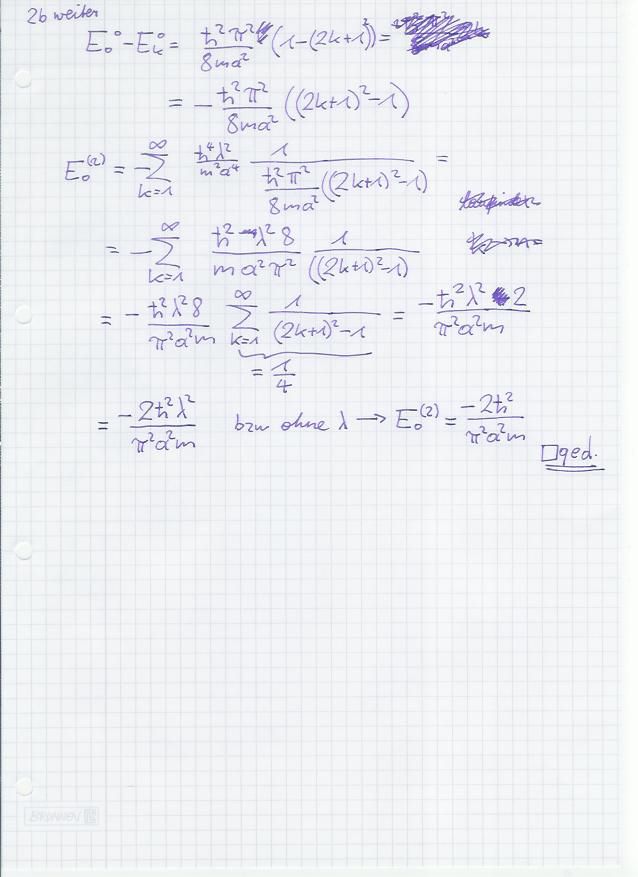 2b weiter
E₀° - Eₖ° = ħ²π²/8ma² (1-(2k+1)²) =
= - ħ²π²/8ma² ((2k+1)²-1)
E₀⁽²⁾ = -∑_{k=1}^{∞} ħ⁴λ²/m²a⁴ 1/(ħ²π²/8ma² ((2k+1)²-1)) =
= -∑_{k=1}^{∞} ħ² λ² 8/(m a² π²) 1/((2k+1)²-1)
= - ħ²λ² 8/(π²a²m) ∑_{k=1}^{∞} 1/((2k+1)²-1) = -ħ²λ² 2/(π²a²m)
= 1/4
= -2ħ²λ²/(π²a²m) bzw ohne λ → E₀⁽²⁾ = -2ħ²/(π²a²m)
□ qed.
BRUNNEN